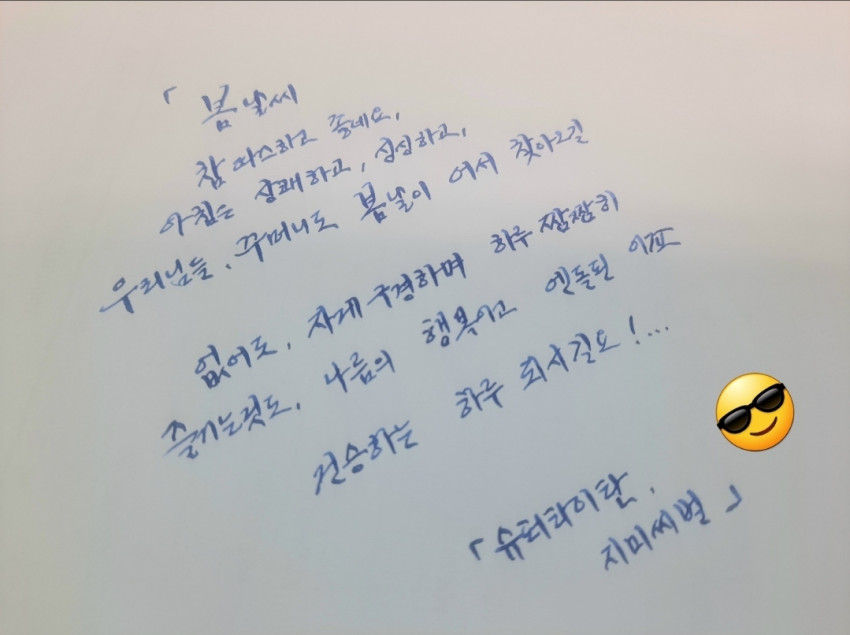 「 봄날씨
참 따스하고 좋네요,
아침는 상쾌하고, 심심하고,
우리님들, 꾸머니도 봄날이 어서 찾아오길
없어도, 자게 구경하며 하루 짬짬히
즐기는것도, 나름의 행복이고 엔돌핀 이죠
건승하는 하루 되시길요!...
「슈퍼타이탄,
지미씨벌」